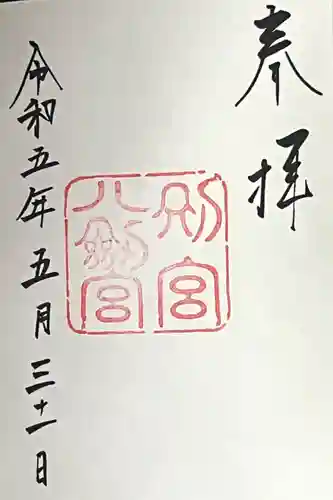 奉拝
別宮
八幡宮
令和五年五月三十一日